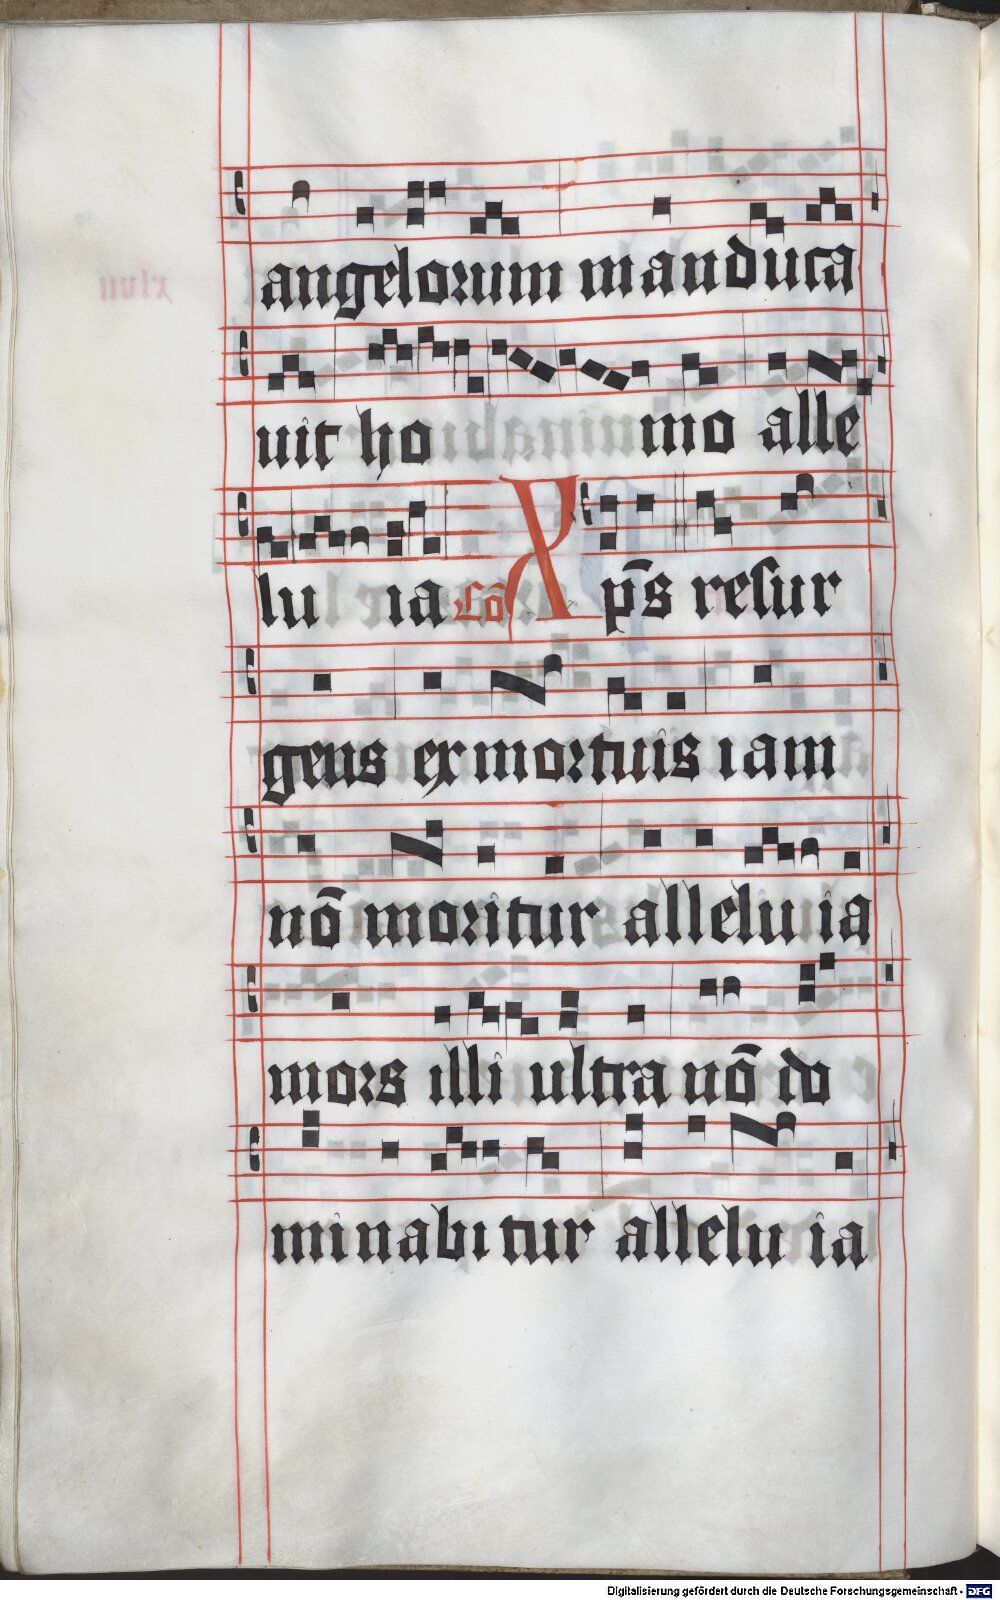 angelorum manduca
uit ho mo alle
lu ia Cō Xp̄s resur
gens ex mortuis iam
nō moritur alleluia
mors illi ultra nō do
minabitur alleluia
Digitalisierung gefördert durch die Deutsche Forschungsgemeinschaft - DFG